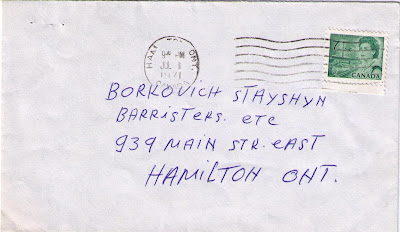 HAMILTON ONT.
PM
JUL
1971
CANADA
BORKOVICH STAYSHYN
BARRISTERS. ETC
939 MAIN STR. EAST
HAMILTON ONT.